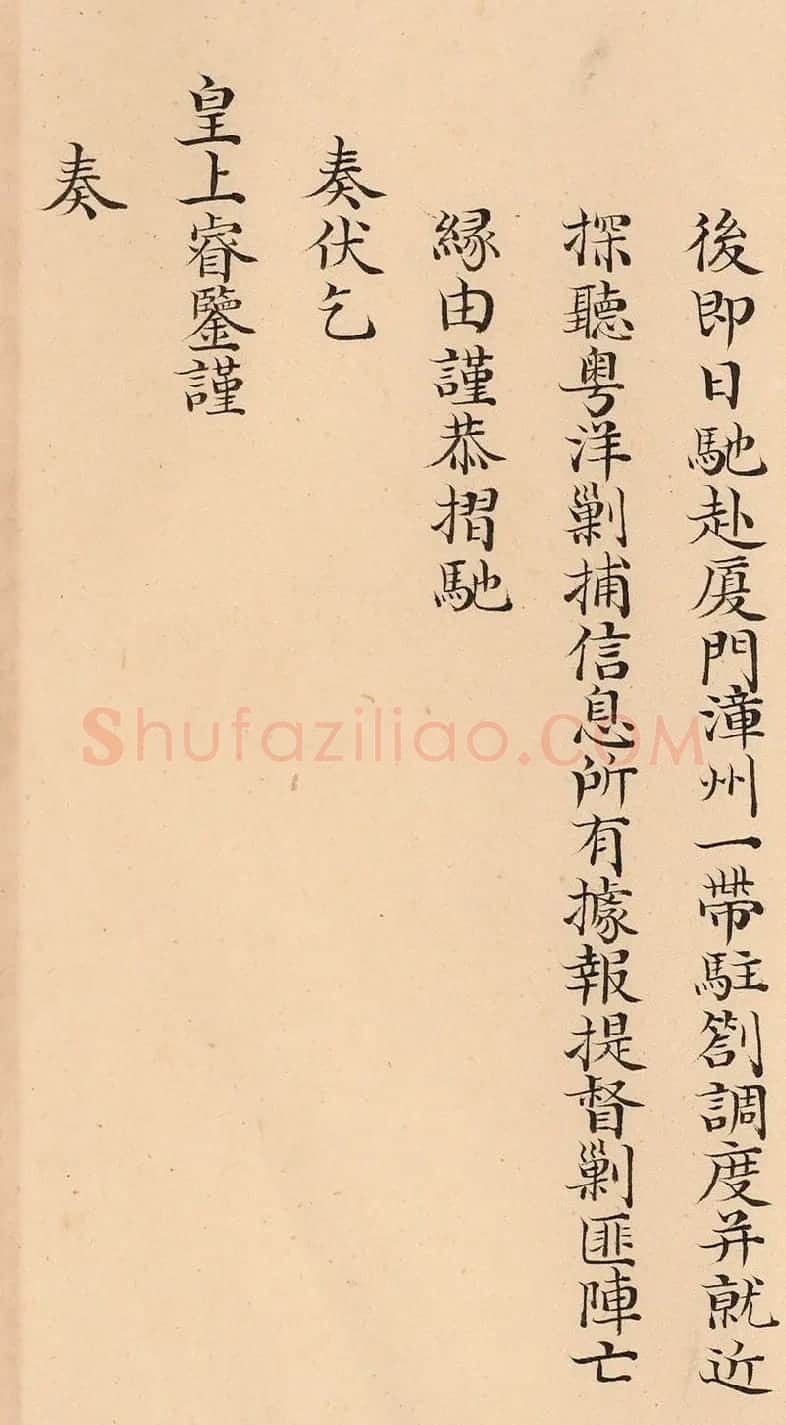 後即日馳赴厦門漳州一帶駐劄調度并就近
探聽粤洋剿捕信息所有據報提督剿匪陣亡
縁由謹恭摺馳
奏伏乞
皇上睿鑒謹
奏
Shufaziliao.COM